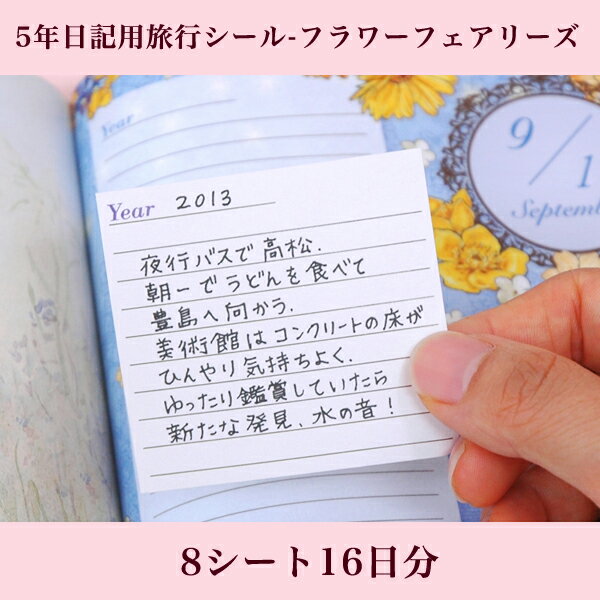 5年日記用旅行シール-フラワーフェアリーズ
Year
9/1
Septemb
Year 2013
夜行バスで高松.
朝一でうどんを食べて
豊島へ向かう.
美術館はコンクリートの床が
ひんやり気持ちよく.
ゆったり鑑賞していたら
新たな発見、水の音！
8シート16日分